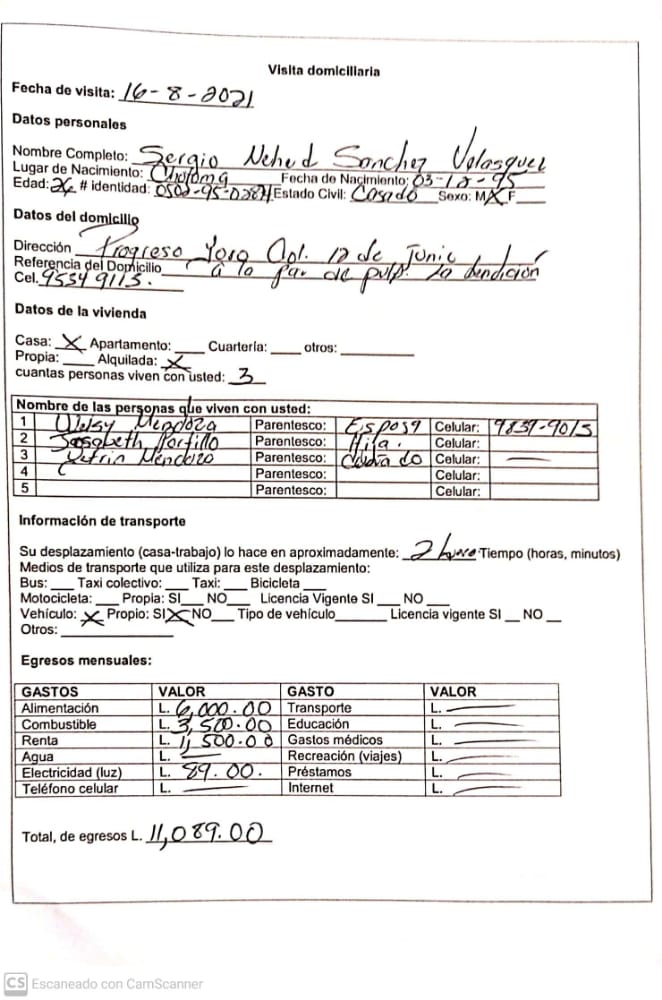 Visita domiciliaria
Fecha de visita: 16-8-2021
Datos personales
Nombre Completo: Sergio Nehed Sanchez Velasquez
Lugar de Nacimiento: Choloma Fecha de Nacimiento: 03-12-95
Edad: 26 # identidad: 0502-95- Estado Civil: Casado Sexo: M X F
Datos del domicilio
Dirección Progreso Yoro Col. 12 de Junio
Referencia del Domicilio a la par de pulp. La bendición
Cel. 9554 9115.
Datos de la vivienda
Casa: X Apartamento: Cuartería: otros:
Propia: Alquilada: X
cuantas personas viven con usted: 3
Nombre de las personas que viven con usted:
1 Mendoza Parentesco: Esposa Celular: 9839-9013
2 Portillo Parentesco: Hija. Celular:
3 Mendoza Parentesco: Cuñado Celular: —
4 Parentesco: Celular:
5 Parentesco: Celular:
Información de transporte
Su desplazamiento (casa-trabajo) lo hace en aproximadamente: 2 horas Tiempo (horas, minutos)
Medios de transporte que utiliza para este desplazamiento:
Bus: Taxi colectivo: Taxi: Bicicleta
Motocicleta: Propia: SI NO Licencia Vigente SI NO
Vehículo: X Propio: SI X NO Tipo de vehículo Licencia vigente SI NO
Otros:
Egresos mensuales:
GASTOS VALOR GASTO VALOR
Alimentación L. 6,000.00 Transporte L. —
Combustible L. 3,500.00 Educación L. —
Renta L. 1,500.00 Gastos médicos L. —
Agua L. — Recreación (viajes) L. —
Electricidad (luz) L. 89.00. Préstamos L. —
Teléfono celular L. — Internet L. —
Total, de egresos L. 11,089.00
CS Escaneado con CamScanner